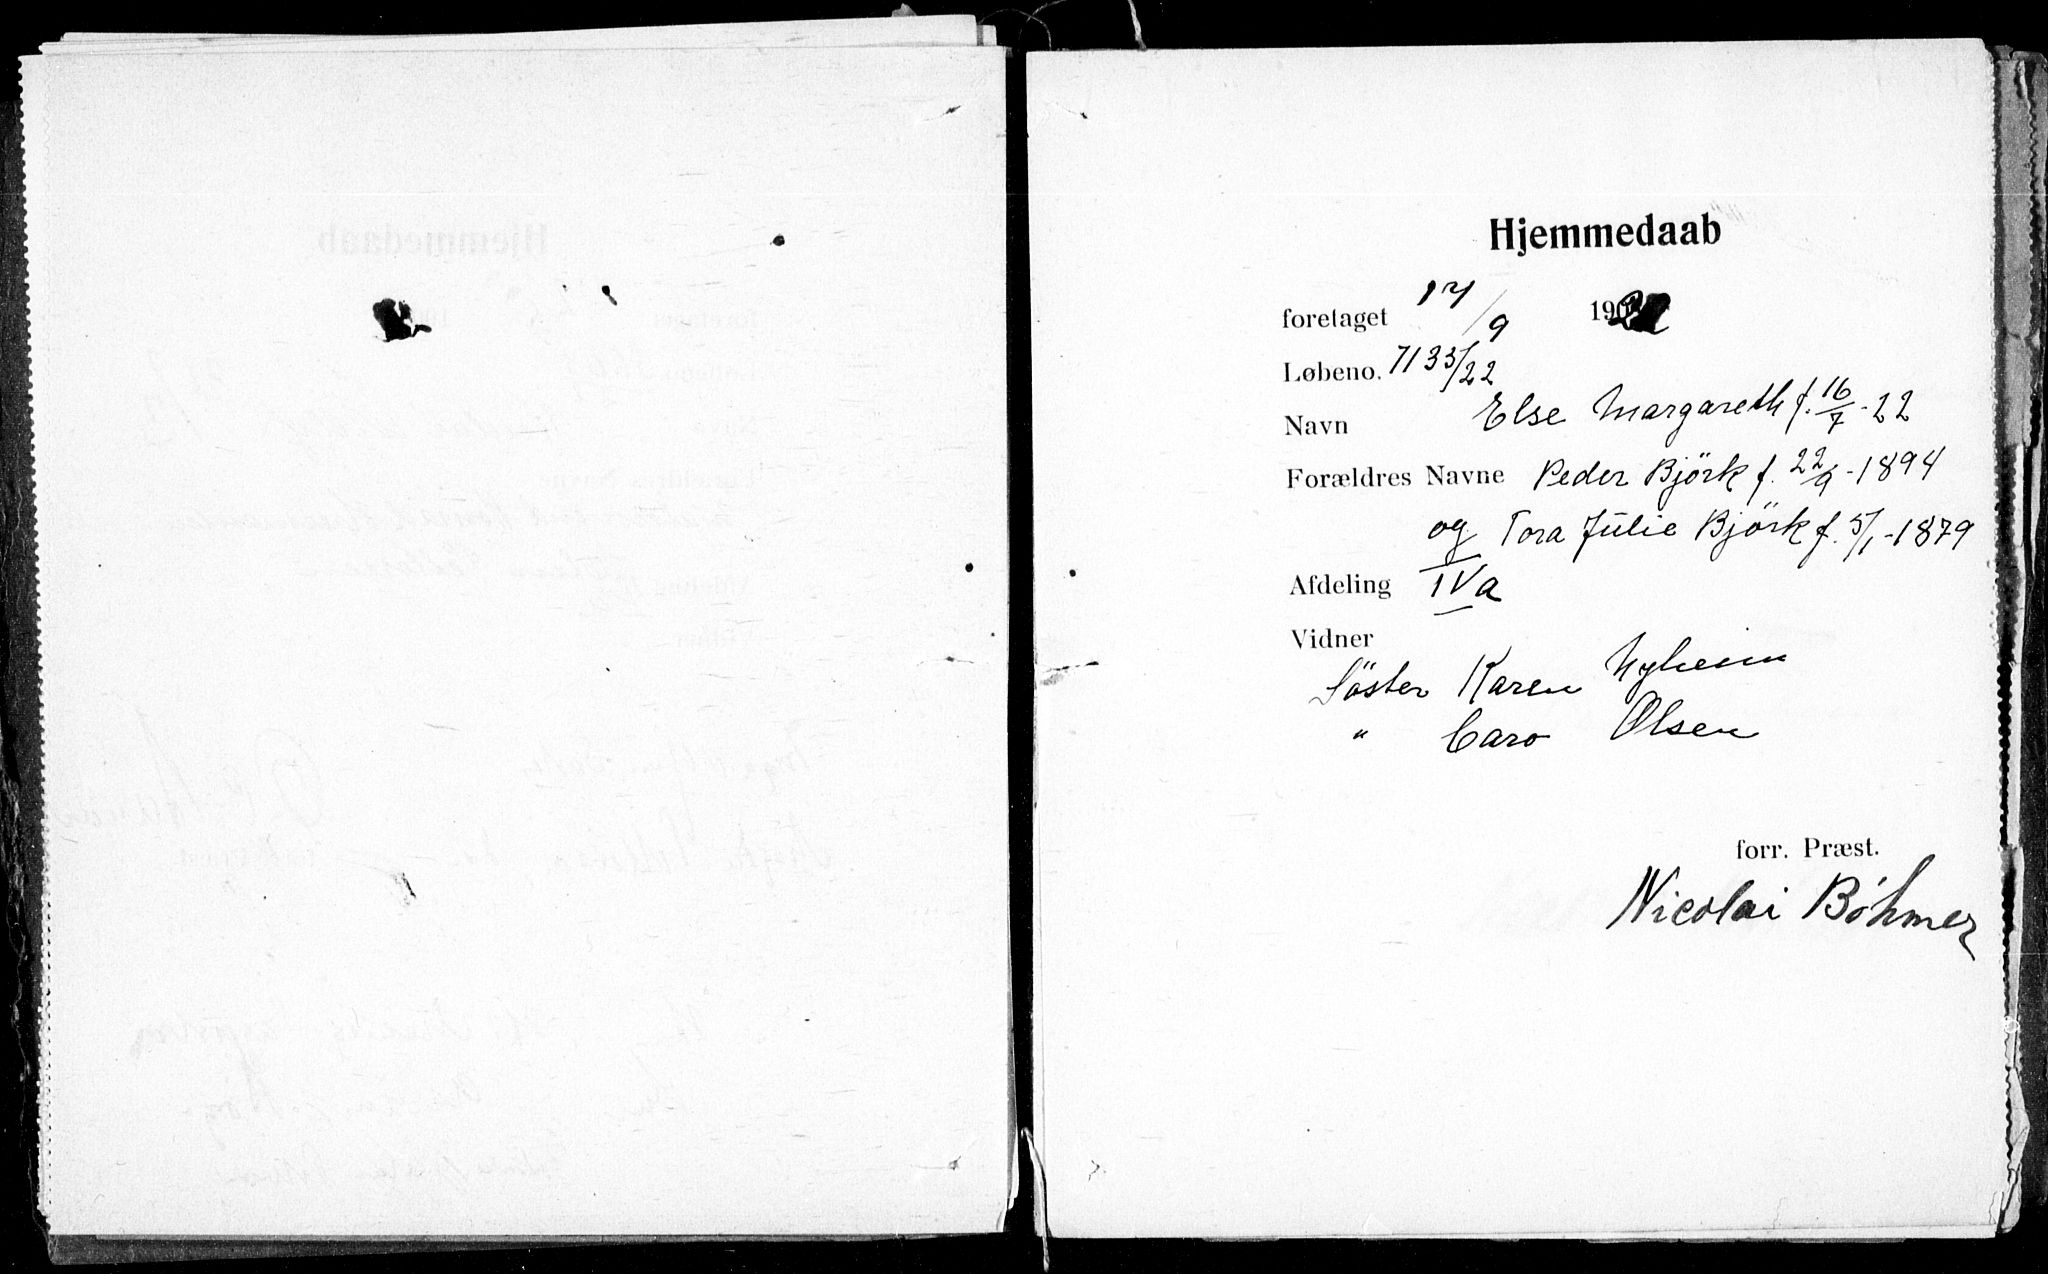 Hjemmedaab
foretaget 17/9 1922
Løbeno. 7133/22
Navn Else Margareth f. 16/7-22
Forældres Navne Peder Björk f. 22/9-1894
og Tora Julie Björk f. 5/1-1879
Afdeling IVa
Vidner
Söster Karen Nyheim
" Caro Olsen
forr. Præst.
Nicolai Böhmer